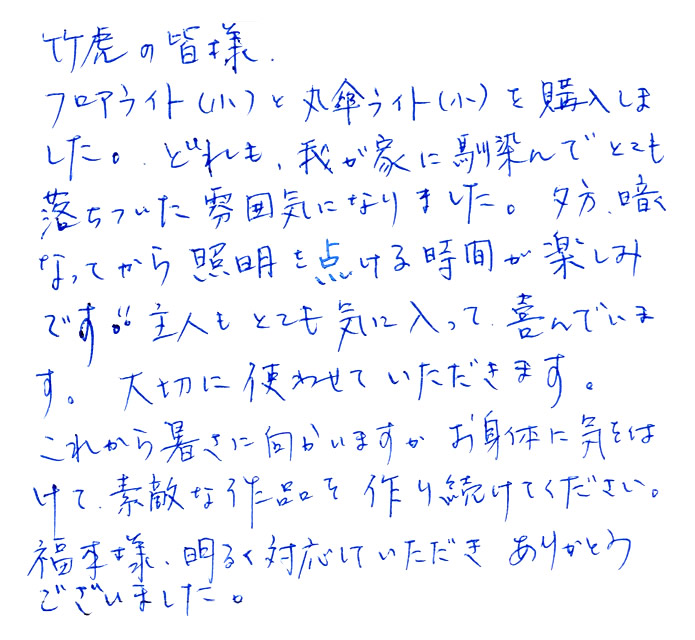 竹虎の皆様.
フロアライト(小)と丸傘ライト(小)を購入しま
した。どれも、我が家に馴染んでとても
落ちついた雰囲気になりました。夕方、暗く
なってから照明を点ける時間が楽しみ
です!!主人もとても気に入って、喜んでいま
す。大切に使わせていただきます。
これから暑さに向かいますが お身体に気をは
けて、素敵な作品を作り続けてください。
福本様、明るく対応していただき ありがとう
ございました。